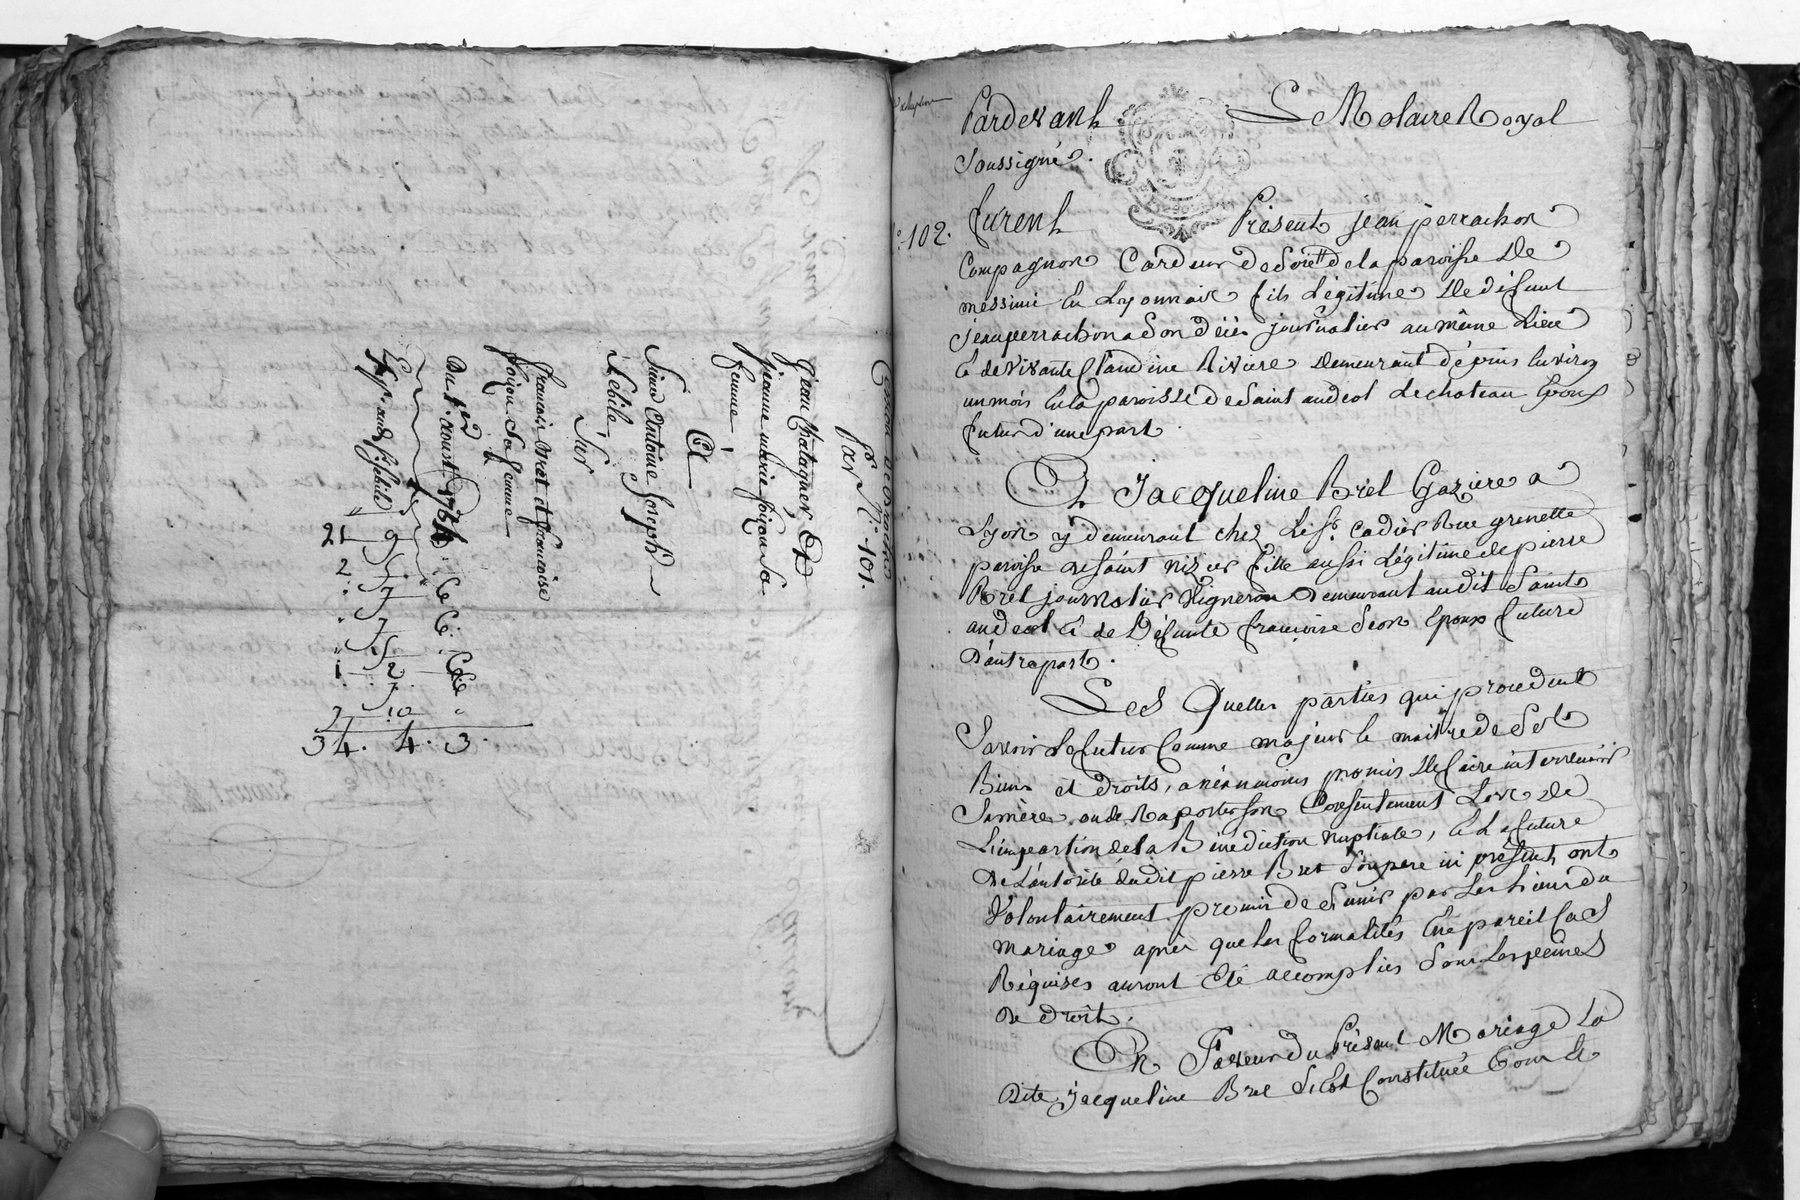 Cession de Droits
par N.° 101.
Jean Chatagner, Et
jeanne marie foizon Sa
femme
Et
Sieur Antoine Joseph
Lebile
Sur
francois Bret et francoise
foizon Sa femme
Du 1er aoust 178
21 9
34. 4. 3.
Pardevant Le Notaire Royal
Soussigné.
N.° 102.
furent Présents jean perrachon
Compagnon Cardeur de Soie de la paroisse De
messimi En Lyonnois fils Légitime De défunt
jean perrachon a Son décès journalier au même Lieu
& de vivante Claudine Riviere Demeurant dépuis Environ
un mois En la paroisse de Saint andeol Lechateau Epoux
futur d'une part.
Et Jacqueline Brèt Gaziere a
Lyon y demeurant chez Le Sr. Cadier Rue grenette
paroisse de saint nizier fille aussi Légitime de pierre
Brèt journalier Vigneron Demeurant audit Saint
andeol & de Défunte françoise Seon Epouse future
D'autre part.
Les Quelles parties qui procedent
Savoir Le futur Comme majeur & maitre de Ses
Biens et droits, a néanmoins promis De faire intervenir
Sa mère ou de Raporter Son Consentement Lors De
L'impartion de la Bénédiction nuptiale, & La future
De L'autorité dudit pierre Bret Son pere ici présent, ont
Volontairement promis de S'unir par Les Liens du
mariage après que Les formalités En pareil Cas
Réquises auront Eté accomplies Sous Les peines
de droit.
En faveur du Présent Mariage La
Dite jacqueline Bret S'est Constituée